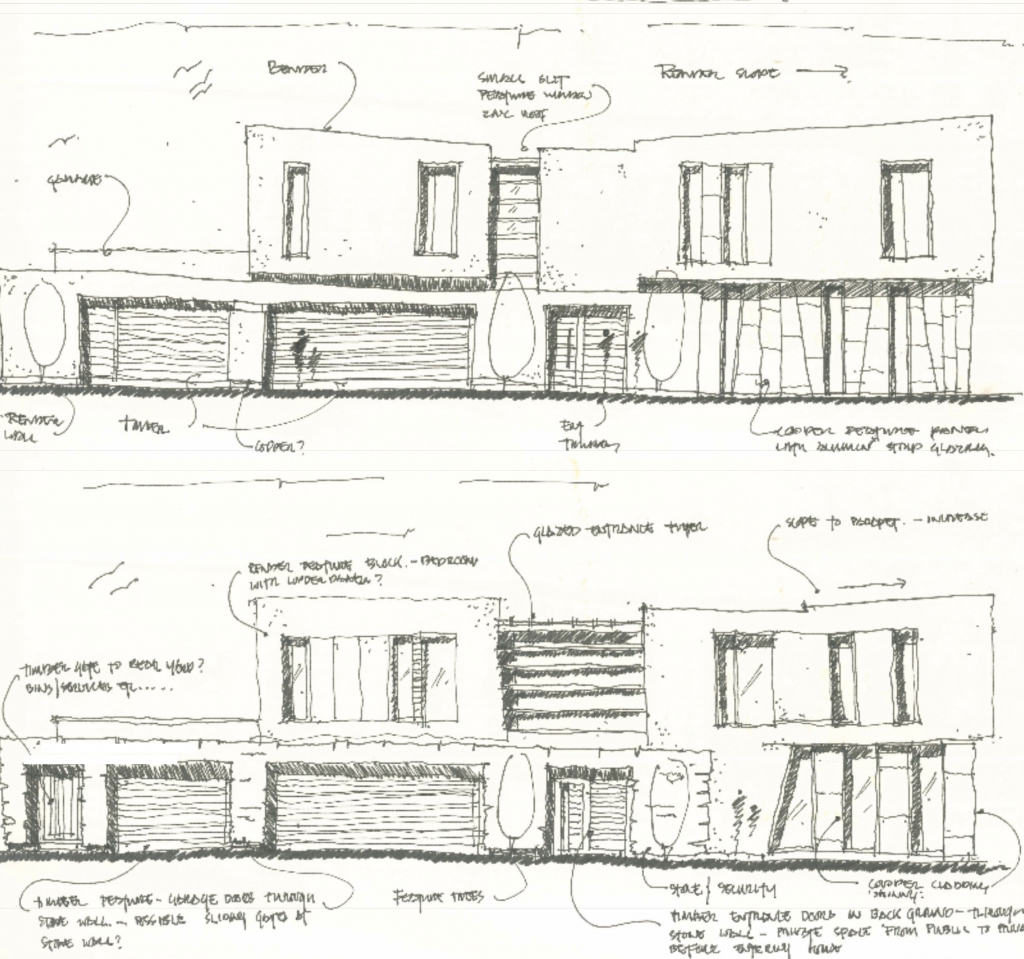 RENDER
SMALL SLIT
FEATURE WINDOW
ZINC ROOF
RENDER SLOPE
RENDER
WALL
TIMBER
COPPER?
TIMBER
COPPER FEATURE PANELS
WITH STRIP GLAZING.
GLAZED ENTRANCE
SLOPE TO PARAPET. - INCREASE
RENDER FEATURE BLOCK. - BEDROOM
WITH
TIMBER GATE TO REAR YARD?
BINS/SERVICES ETC.....
TIMBER FEATURE - GARAGE DOORS THROUGH
STONE WALL. - POSSIBLE SLIDING GATES
STONE WALL?
FEATURE TREES
STONE/ SECURITY
COPPER CLADDING
TIMBER ENTRANCE DOORS IN BACK GROUND - THROUGH
STONE WALL - PRIVATE SPACE FROM PUBLIC TO
BEFORE ENTERING